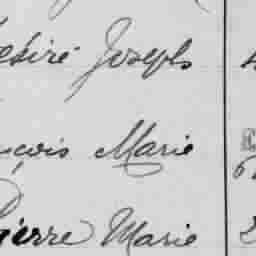 ésiré Joseph
nçois Marie
Pierre Marie